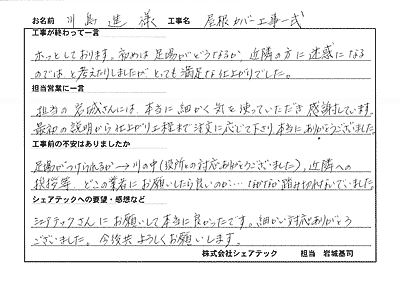 お名前 川島 進 様 工事名 屋根カバー工事一式
工事が終わって一言
ホッとしております。初めは足場がどうなるか、近隣の方に迷惑になる
のではと考えたりしましたがとっても満足な仕上がりでした。
担当営業に一言
担当の岩城さんには、本当に細かく気を使っていただき感謝しています。
最初の説明から仕上がり工程まで注文に応じて下さり本当にありがとうございました。
工事前の不安はありましたか
足場がつけられるか→川の中(役所の対応ありがとうございました)、近隣への
挨拶等、どこの業者にお願いしたら良いのか… なかなか踏み切れないでいました
シェアテックへの要望・感想など
シェアテックさんにお願いして本当に良かったです。細かい対応ありがとう
ございました。今後共よろしくお願いします。
株式会社シェアテック 担当 岩城基司